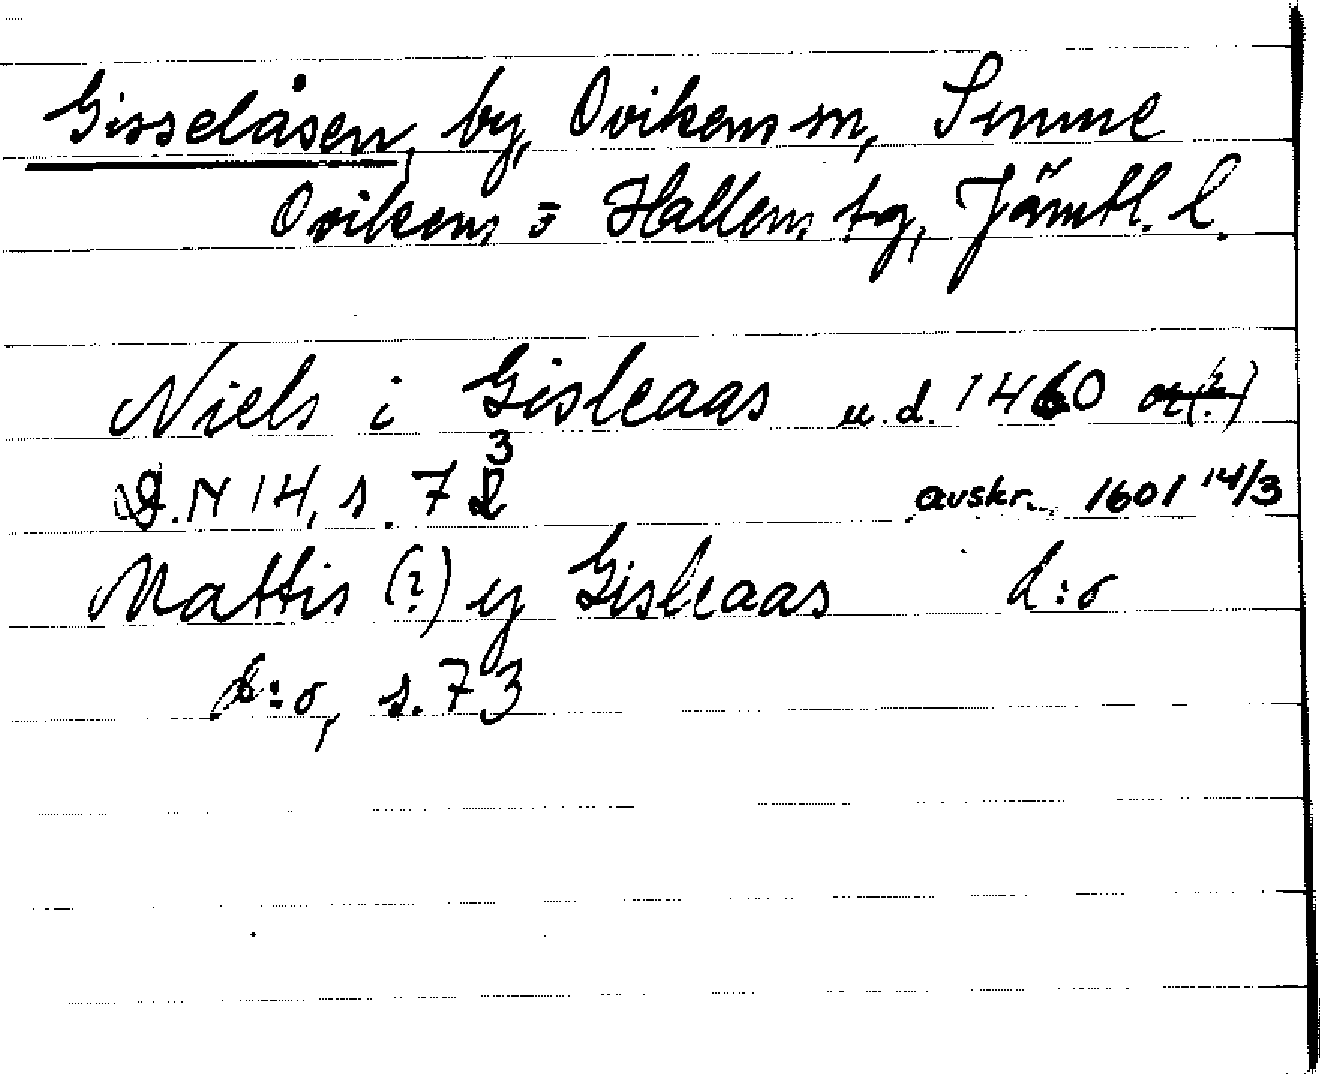 Gisselåsen, by, Ovikens sn,
Ovikens o Hallens tg, Jämtl. l.
Niels i Gisleaas u.d. 1460 or(?)
D.N 14, s. 73 avskr. 1601 14/3
Mattis (?) y Gisleaas d:o
d:o, s. 73